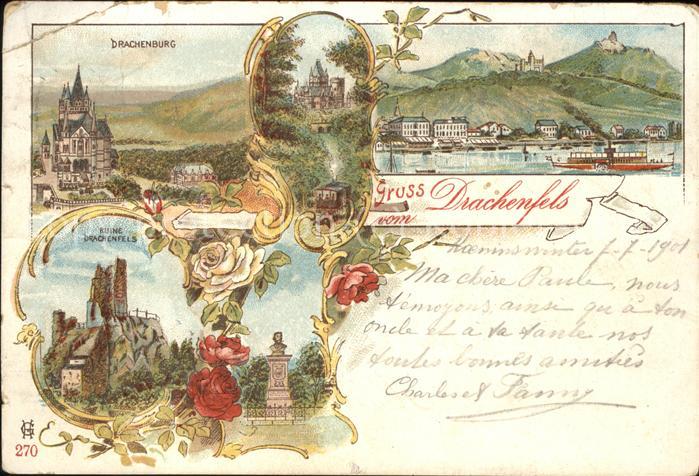 DRACHENBURG
RUINE
DRACHENFELS
Gruss
vom Drachenfels
Kœnimswinter 7-7-1901
Ma chère Paule, nous
t'envoyons, ainsi qu'à ton
oncle et à ta tante nos
toutes bonnes amitiés
Charles et Fanny
270